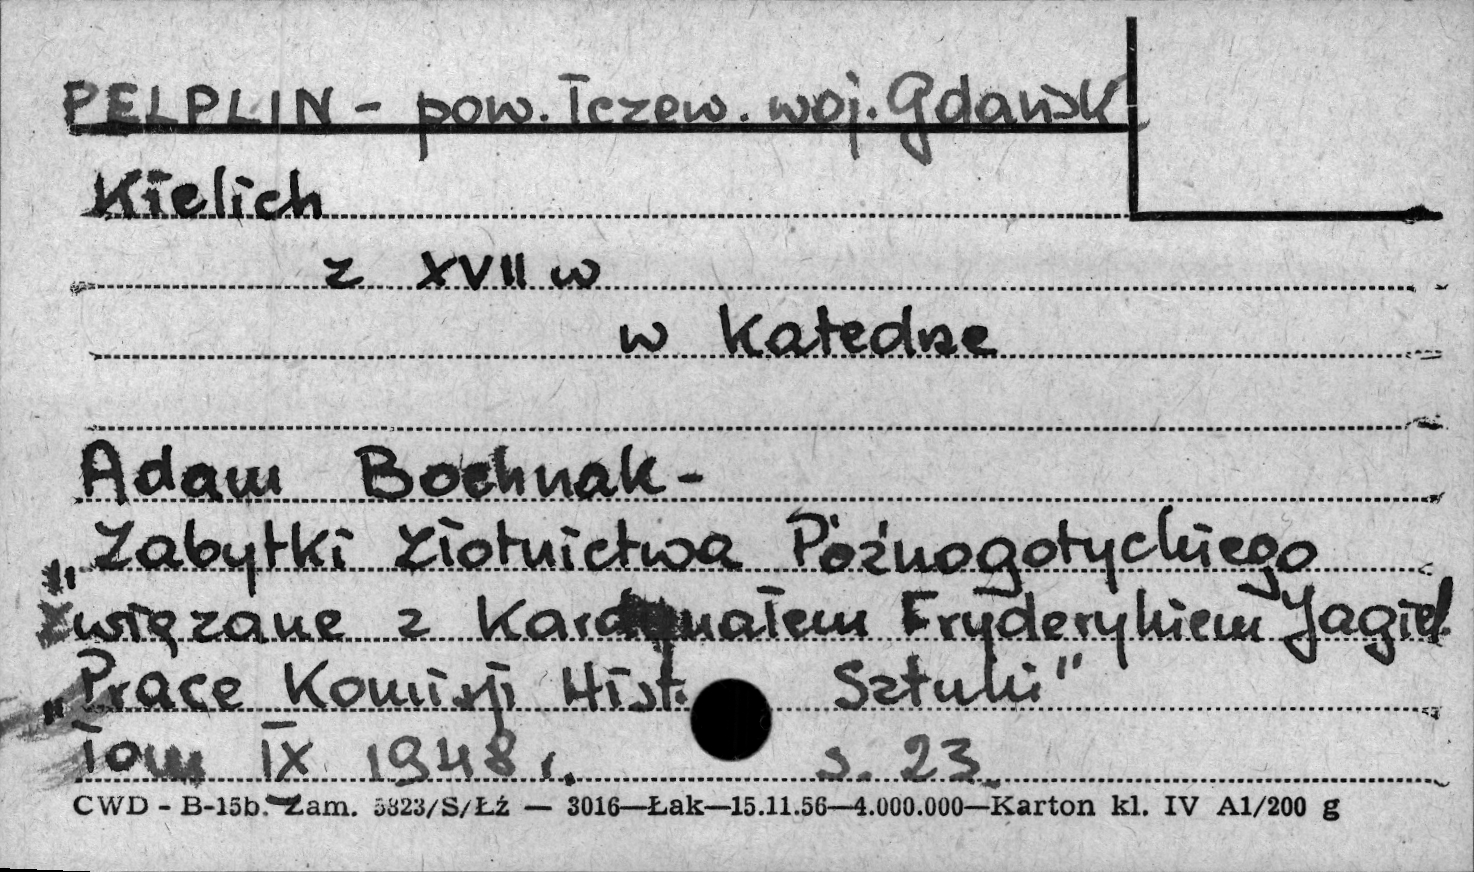 PELPLIN - pow. Tczew. woj. Gdańsk
Kielich
z XVII w
w Katedrze
Adam Bochnak -
"Zabytki złotnictwa Późnogotyckiego
związane z Kardynałem Fryderykiem Jagiel.
"Prace Komisji Hist. Sztuki"
Tom IX 1948 r. s. 23
CWD - B-15b. Zam. 5823/S/Łź — 3016—Łak—15.11.56—4.000.000—Karton kl. IV A1/200 g